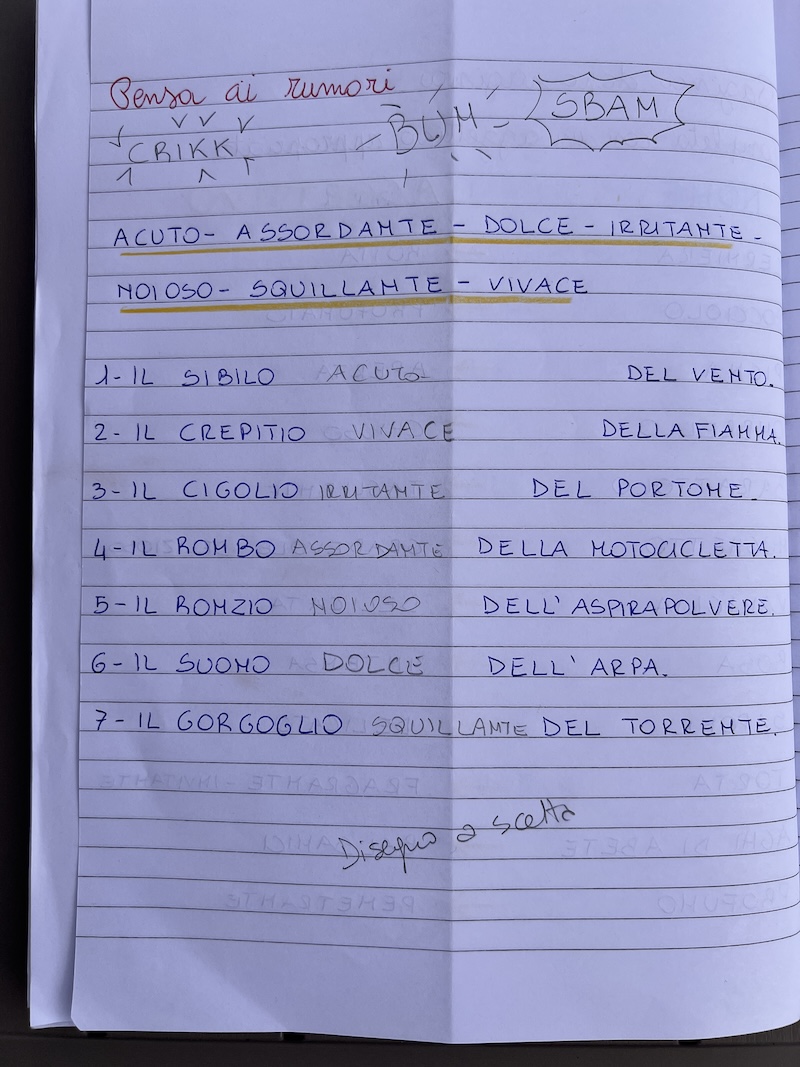 Pensa ai rumori
CRIKK BUM SBAM
ACUTO - ASSORDANTE - DOLCE - IRRITANTE -
NOIOSO - SQUILLANTE - VIVACE
1- IL SIBILO ACUTO DEL VENTO.
2- IL CREPITIO VIVACE DELLA FIAMMA.
3- IL CIGOLIO IRRITANTE DEL PORTONE.
4- IL ROMBO ASSORDANTE DELLA MOTOCICLETTA.
5- IL RONZIO NOIOSO DELL'ASPIRAPOLVERE.
6- IL SUONO DOLCE DELL'ARPA.
7- IL GORGOGLIO SQUILLANTE DEL TORRENTE.
Disegno a scelta